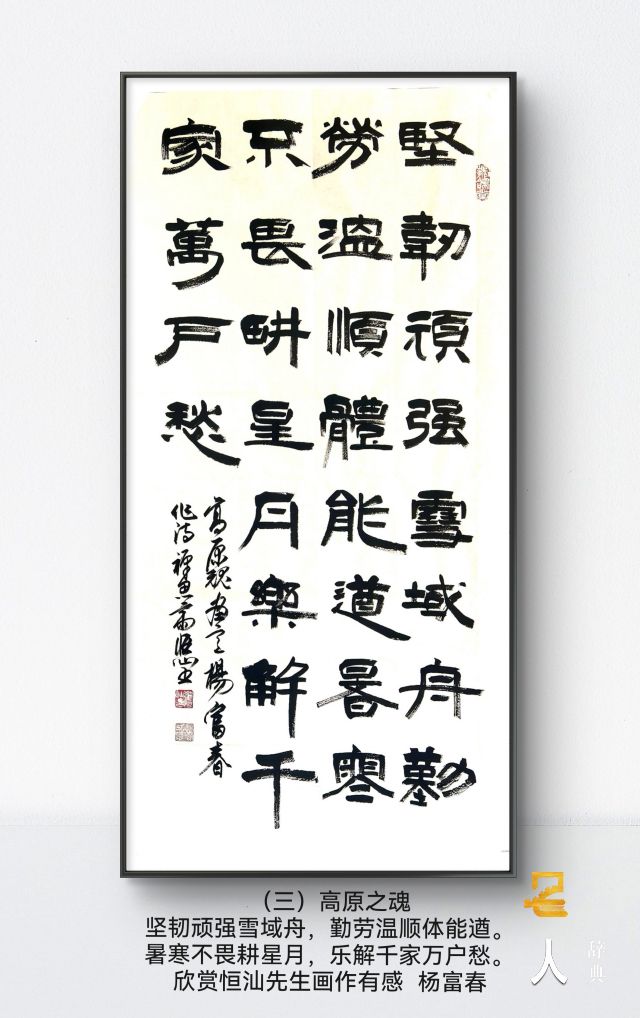 堅韌頑强雪域舟勤
勞溫順體能遒暑寒
不畏畊星月樂解千
家萬戶愁
高原魂 楊富春
作詩
（三）高原之魂
坚韧顽强雪域舟，勤劳温顺体能遒。
暑寒不畏耕星月，乐解千家万户愁。
欣赏恒汕先生画作有感 杨富春
名人
辞典